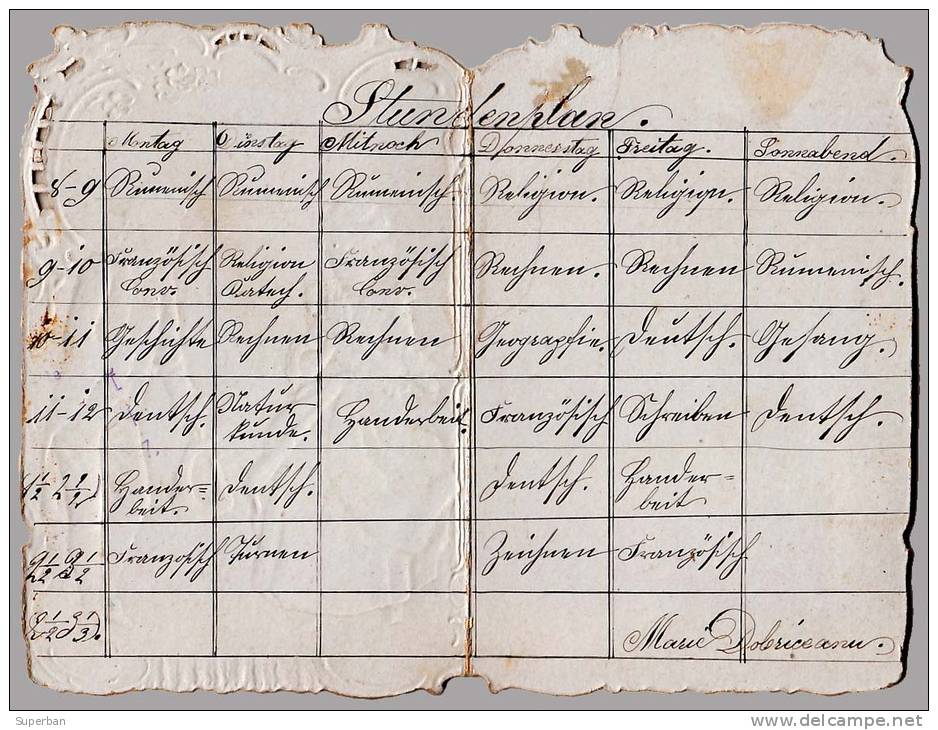 Stundenplan.
Montag Dinstag Mitnoch Donnerstag Freitag. Sonnabend.
8-9 Rumenisch Rumenisch Rumeinisch. Religion. Religion. Religion.
9-10 Französisch Religion Französisch Rechnen. Rechnen Rumenisch.
Conv. Katech. Conv.
10-11 Geschichte Rechnen Rechnen Geographie. Deutsch. Gesang.
11-12 Deutsch. Natur Handerbeit. Französisch Schreiben Deutsch.
kunde.
Hander= Deutsch. Deutsch. Hander=
beit. beit
Französisch Turnen Zeichnen Französisch
Marie Dobriceanu.
Superban
www.delcampe.net